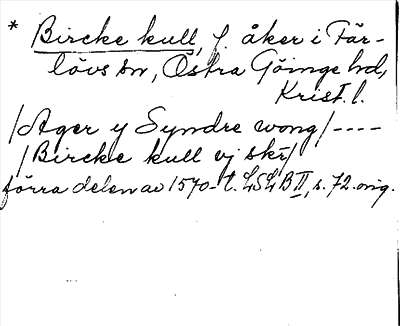 * Bircke kull, f. åker i Fär-
lövs sn, Östra Göinge hd,
Krist. l.
/Ager y Syndre wong/----
/Bircke kull vj skr/
förra delen av 1570-t. LSLB II, s. 72. orig.